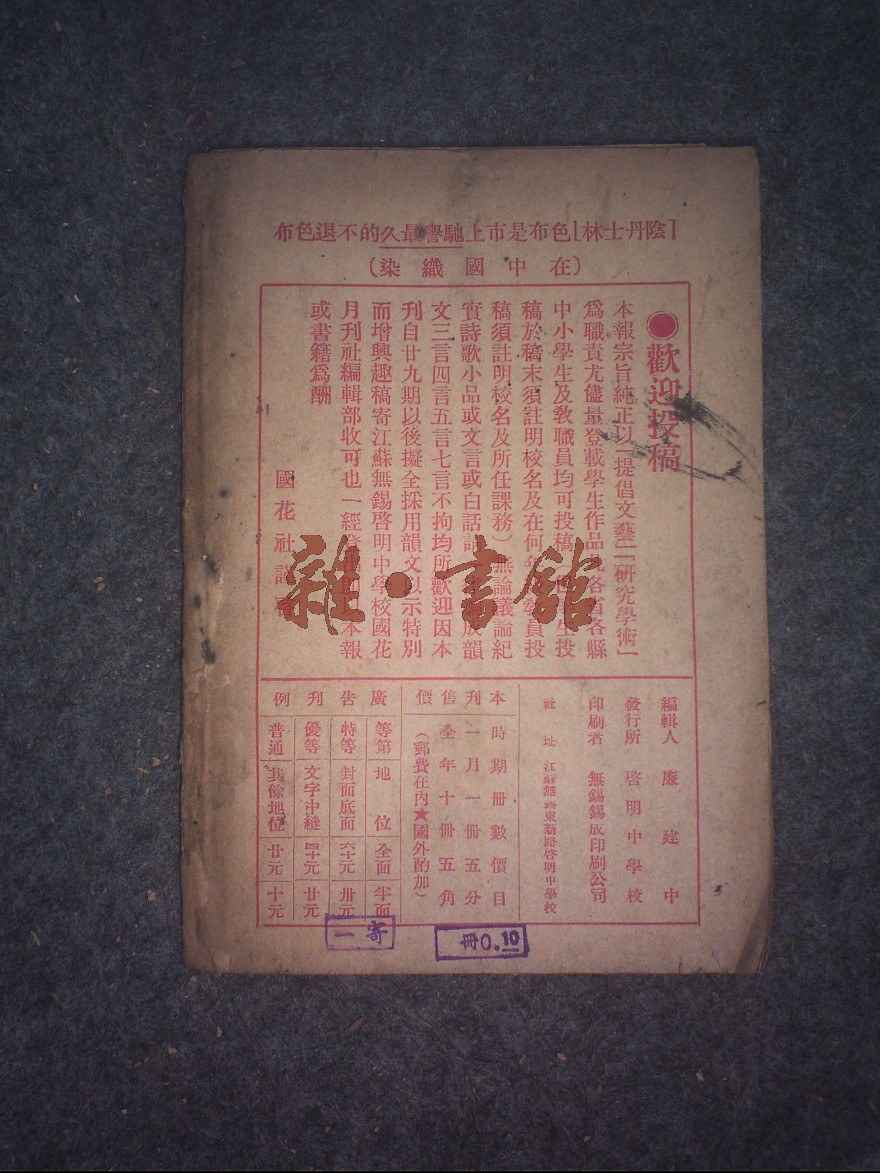 「陰丹士林」色布是市上馳譽最久的不退色布
(在中國織染)
●歡迎投稿
本報宗旨純正以「提倡文藝」「研究學術」
爲職責尤儘量登載學生作品凡各省各縣
中小學生及敎職員均可投稿 生投
稿於稿末須註明校名及在何年 敎員投
稿須註明校名及所任課務)無論議論紀
實詩歌小品或文言或白話 成韻
文三言四言五言七言不拘均所歡迎因本
刊自廿九期以後擬全採用韻文以示特別
而增興趣稿寄江蘇無錫啓明中學校國花
月刊社編輯部收可也一經登 本報
或書籍爲酬
國花社謹
雜·書館
編輯人 廉建中
發行所 啓明中學校
印刷者 無錫錫成印刷公司
社址 江蘇無錫東新路啓明中學校
本刊售價
時期 冊數 價目
一月 一冊 五分
全年 十冊 五角
(郵費在內★國外酌加)
廣告刊例
等第 地位 全面 半面
特等 封面底面 六十元 卅元
優等 文字中縫 四十元 廿元
普通 其餘地位 廿元 十元
寄一
冊0.10